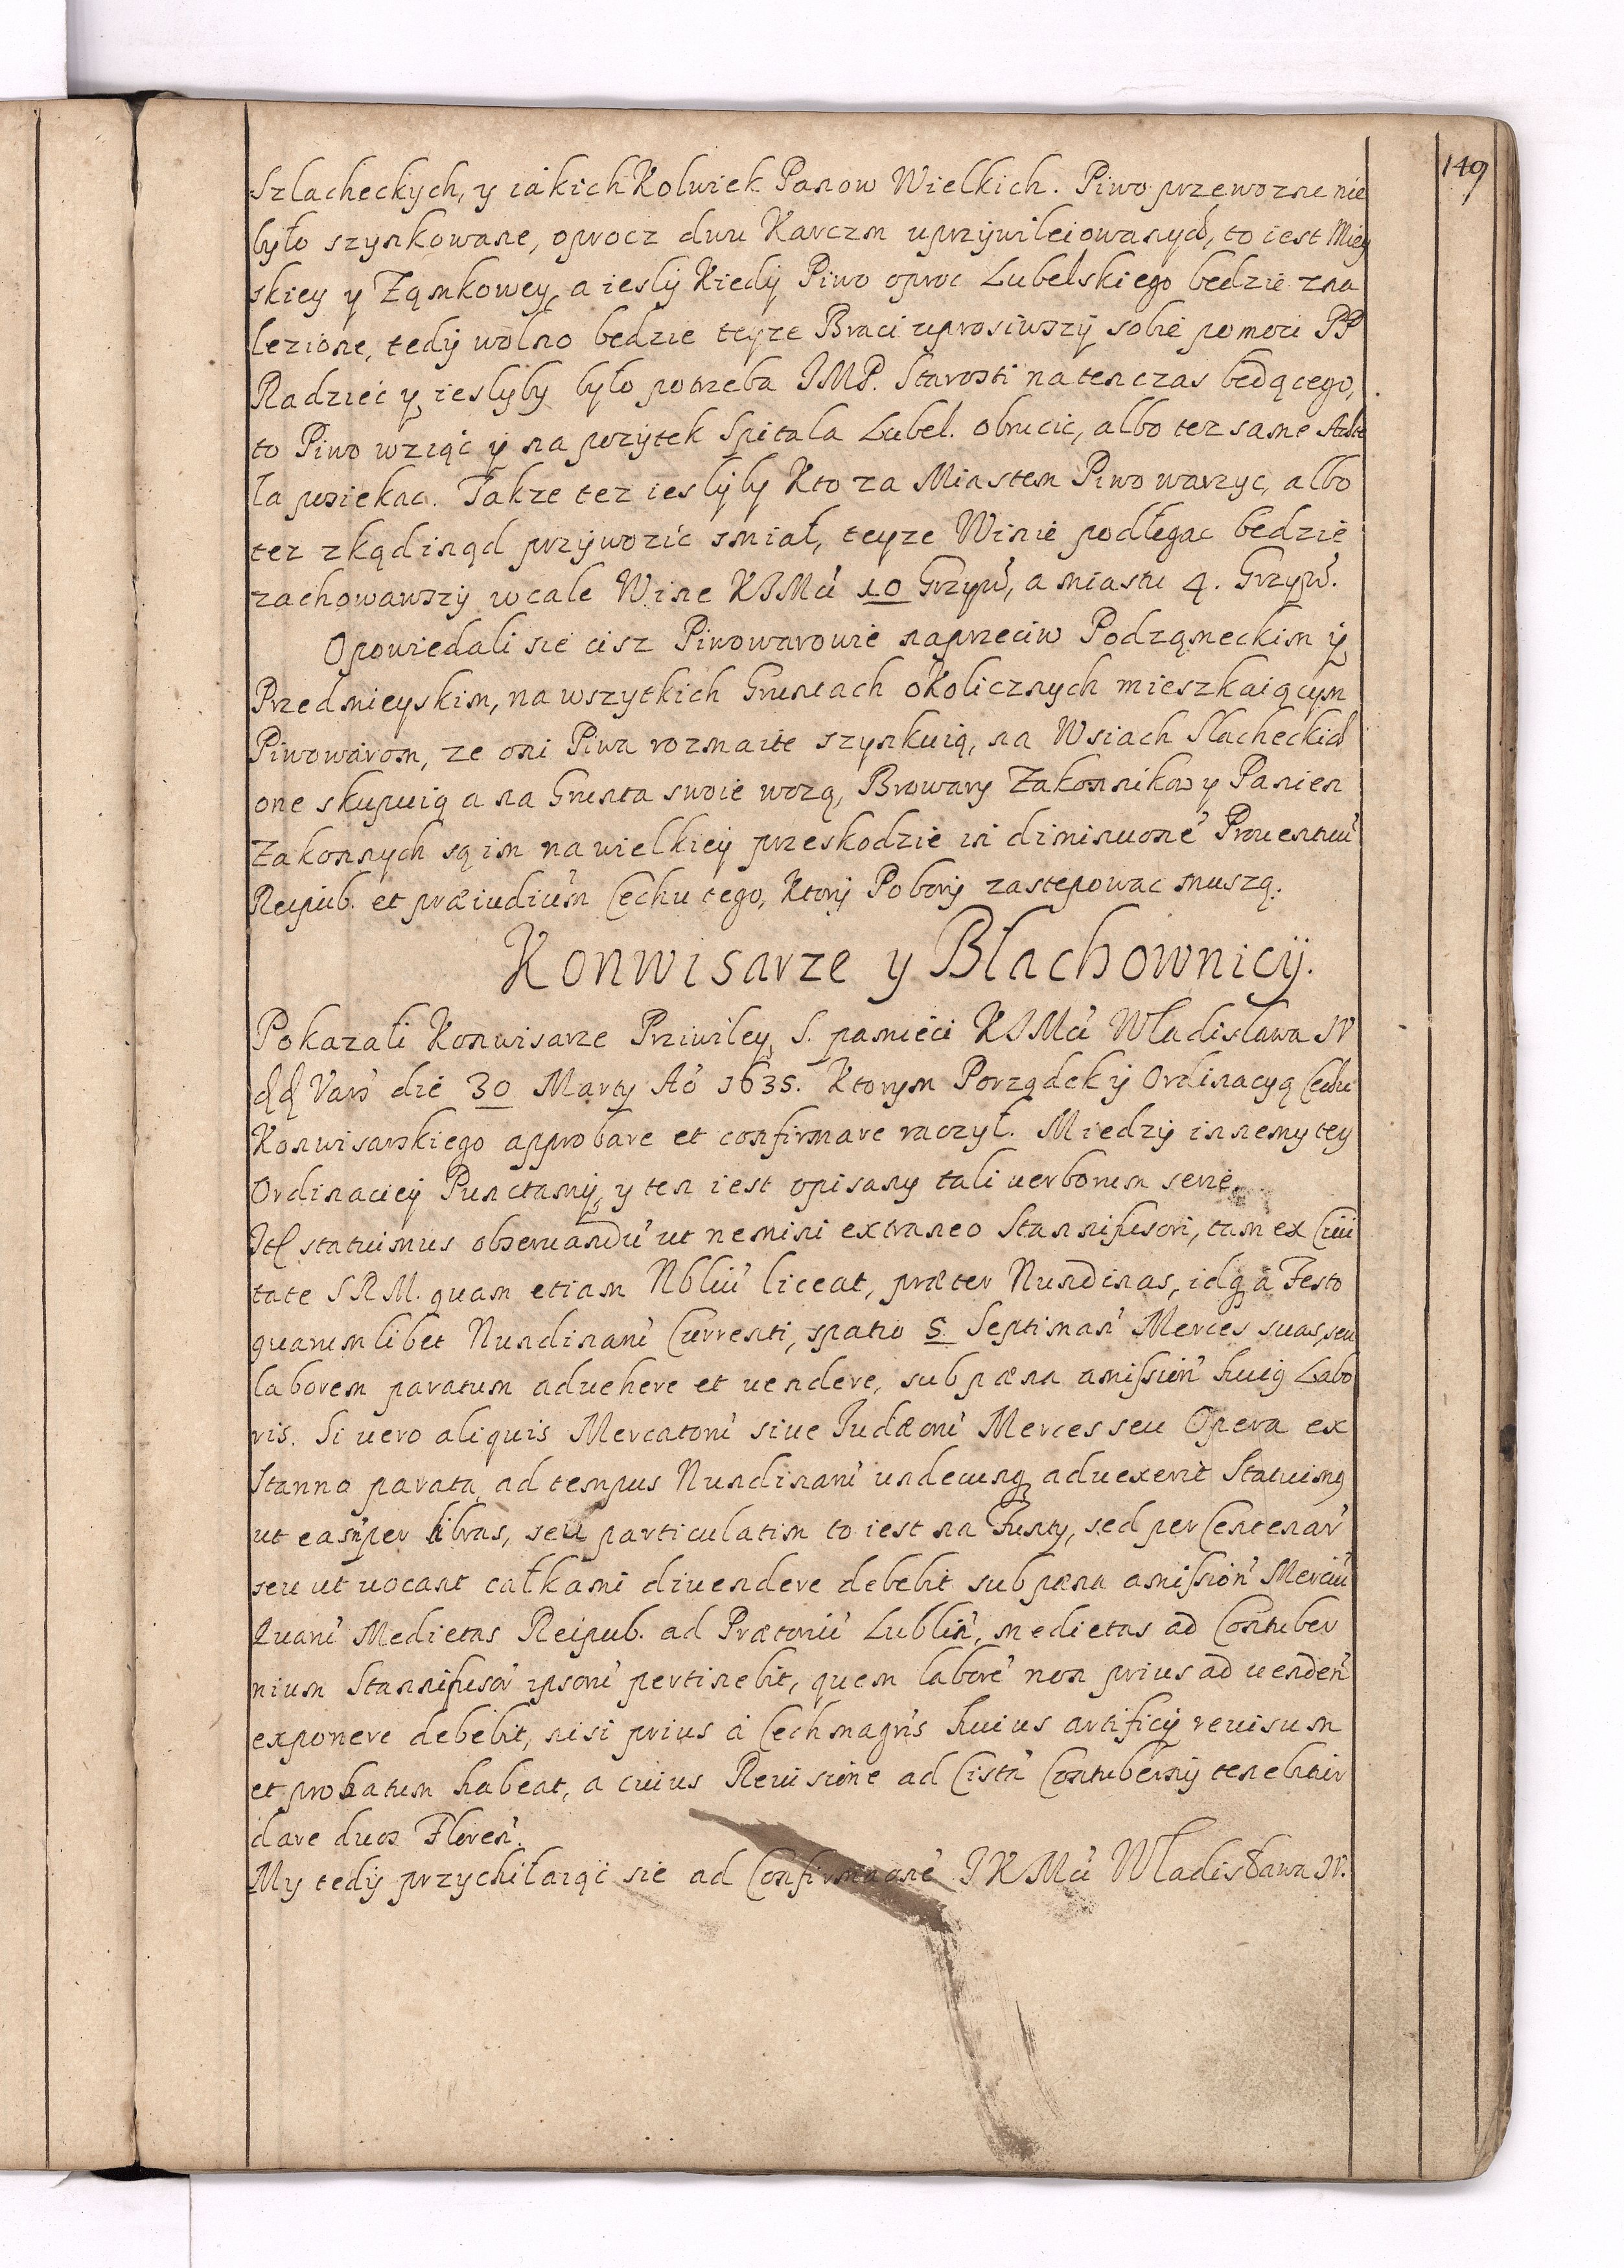 149
Szlacheckych, y iakich Kolwiek Panow Wielkich. Piwo przewozne nie
było szynkowane, oprocz dwu Karczm uprzywileiowanych, to iest Miey
skiey y Ząmkowey, a iesly Kiedy Piwo oproc Lubelskiego bedzie zna
lezione, tedy wolno bedzie teyze Braci uprosiwszy sobie pomoci PP
Radziec y ieslyby było potrzeba JMP. Starosti na ten czas będącego,
to Piwo wziąć y na pozytek Spitala Lubel. obrucic, albo tez same
ła posiekac. Takze tez ieslyby Kto za Miastem Piwo warzyc, albo
tez zkądinąd przywozic smiał, teyze Winie podłegac bedzie
zachowawszy wcale Wine KJMci 10 Grzyw', a miastu 4. Grzyw'.
Opowiedali sie cisz Piwowarowie naprzeciw Podząmeckim y
Przedmieyskim, na wszytkich Gruntach okolicznych mieszkaiącym
Piwowarom, ze oni Piwa rozmaite szynkuią, na Wsiach Slacheckich
one skupuią a na Grunta swoie wozą, Browary Zakonnikow y Panien
Zakonnych są im na wielkiey przeskodzie in diminuone' Prouentuu'
Reipub. et præiudiu'm Cechu tego, Ktory Pobory zastepowac muszą.
Konwisarze y Blachownicy.
Pokazali Konwisarze Przywiley, S. pamieci KJMci Władisława IV
dd Vars' die 30 Marty Ao 1635. Ktorym Porządek y Ordinacyą Cechu
Konwisarskiego approbare et confirmare raczył. Miedzy innemy tey
Ordinaciey Punctamy, y ten iest opisany tali uerborum serie.
Itē statuimus obseruandu' ut nemini extraneo Stannifusori, tam ex Ciui
tate SRM. quam etiam Nbliu' liceat, præter Nundinas, idq à Festo
quarumlibet Nundinaru' Currenti, spatio 5. Septiman' Merces suas, seu
laborem paratum aduehere et uendere, sub pæna amission' huiq Labo
ris. Si uero aliquis Mercatoru' siue Iudæoru' Merces seu Opera ex
Stanno parata ad tempus Nundinaru' undecunq aduexerit Statuimq
ut eas n' per libras, seu particulatim to iest na Funty, sed per Centenar'
seu ut uocant całkami diuendere debebit sub pæna amission' Merciu'
Quaru' Medietas Reipub. ad Prætoriu' Lublin', medietas ad Contuber
nium Stannifusor' ipsoru' pertinebit, quem labore' non prius ad uenden'
exponere debebit, nisi prius à Cechmagr'is huius artificij reuisum
et probatum habeat, a cuius Reuisione ad Cista' Contubernij tenebitur
dare duos Floren'.
My tedy przychilaiąc sie ad Confirmaone' JKMci Władisława IV.